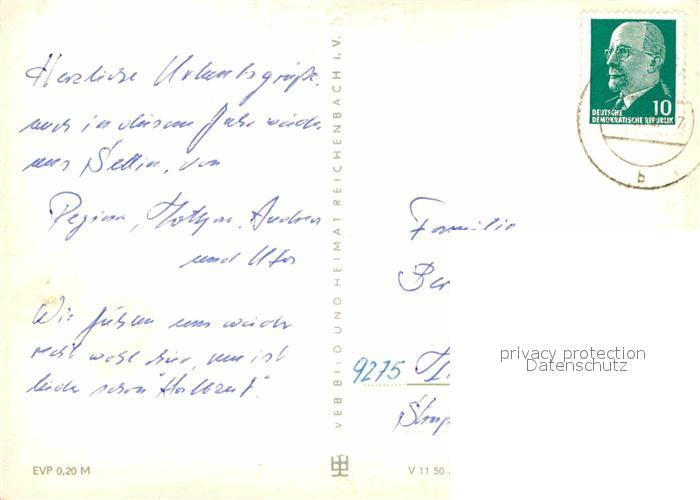 Herzliche Urlaubsgrüße,
auch in diesem Jahr wieder
aus Sellin, von
Regina, Lothar, Andrea
und Uta
Wir fühlen uns wieder
recht wohl hier, nun ist
leider schon "Halbzeit".
VEB BILD UND HEIMAT REICHENBACH I. V.
EVP 0,20 M
10
DEUTSCHE
DEMOKRATISCHE REPUBLIK
b
Familie
9275
privacy protection
Datenschutz
V 11 50